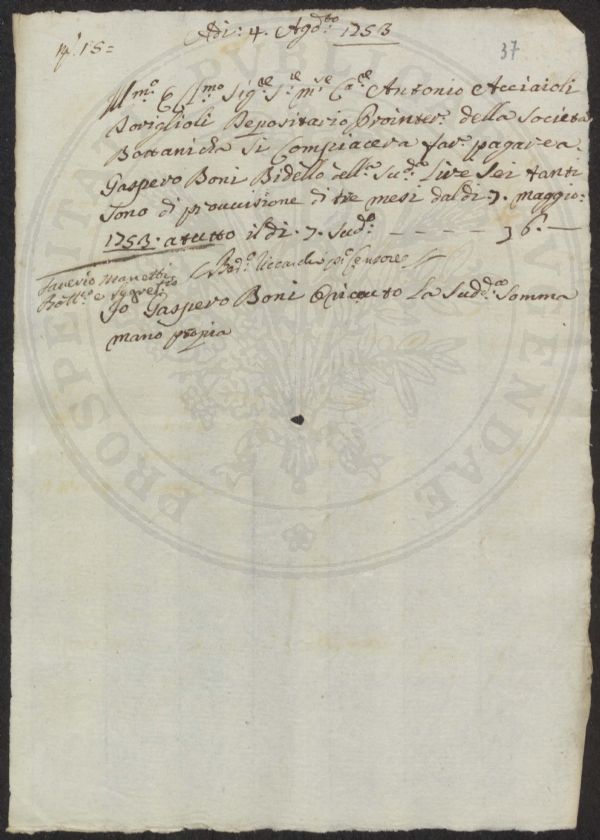 Adi: 4. Agosto 1753
37
N.° 15=
Ill.mo e Cl.mo Sig.re Antonio Acciaioli
Toriglioli Depositario Prointer.° della Società
Bottanicha si Compiacera far pagare a
Gaspero Boni Bidello dell.a Sud.a Lire Sei tanti
sono di provvisione di tre mesi dal di 7. Maggio:
1753. a tutto il di. 7. Sud.° - - - - - 36.-
Saverio Manetti
Seg.rio
Bott.co e
Io Gaspero Boni ò riceuto La Sud.a Somma
mano propia
PROSPERITATI PUBLICAE AUGENDAE